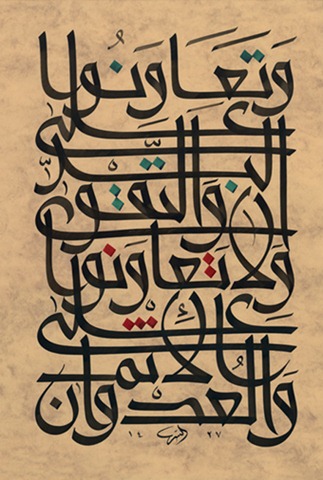 وَتَعَاوَنُوا
عَلَى
الْبِرِّ
وَالتَّقْوَى
وَلَا تَعَاوَنُوا
عَلَى
الْإِثْمِ
وَالْعُدْوَانِ
١٤٢٧